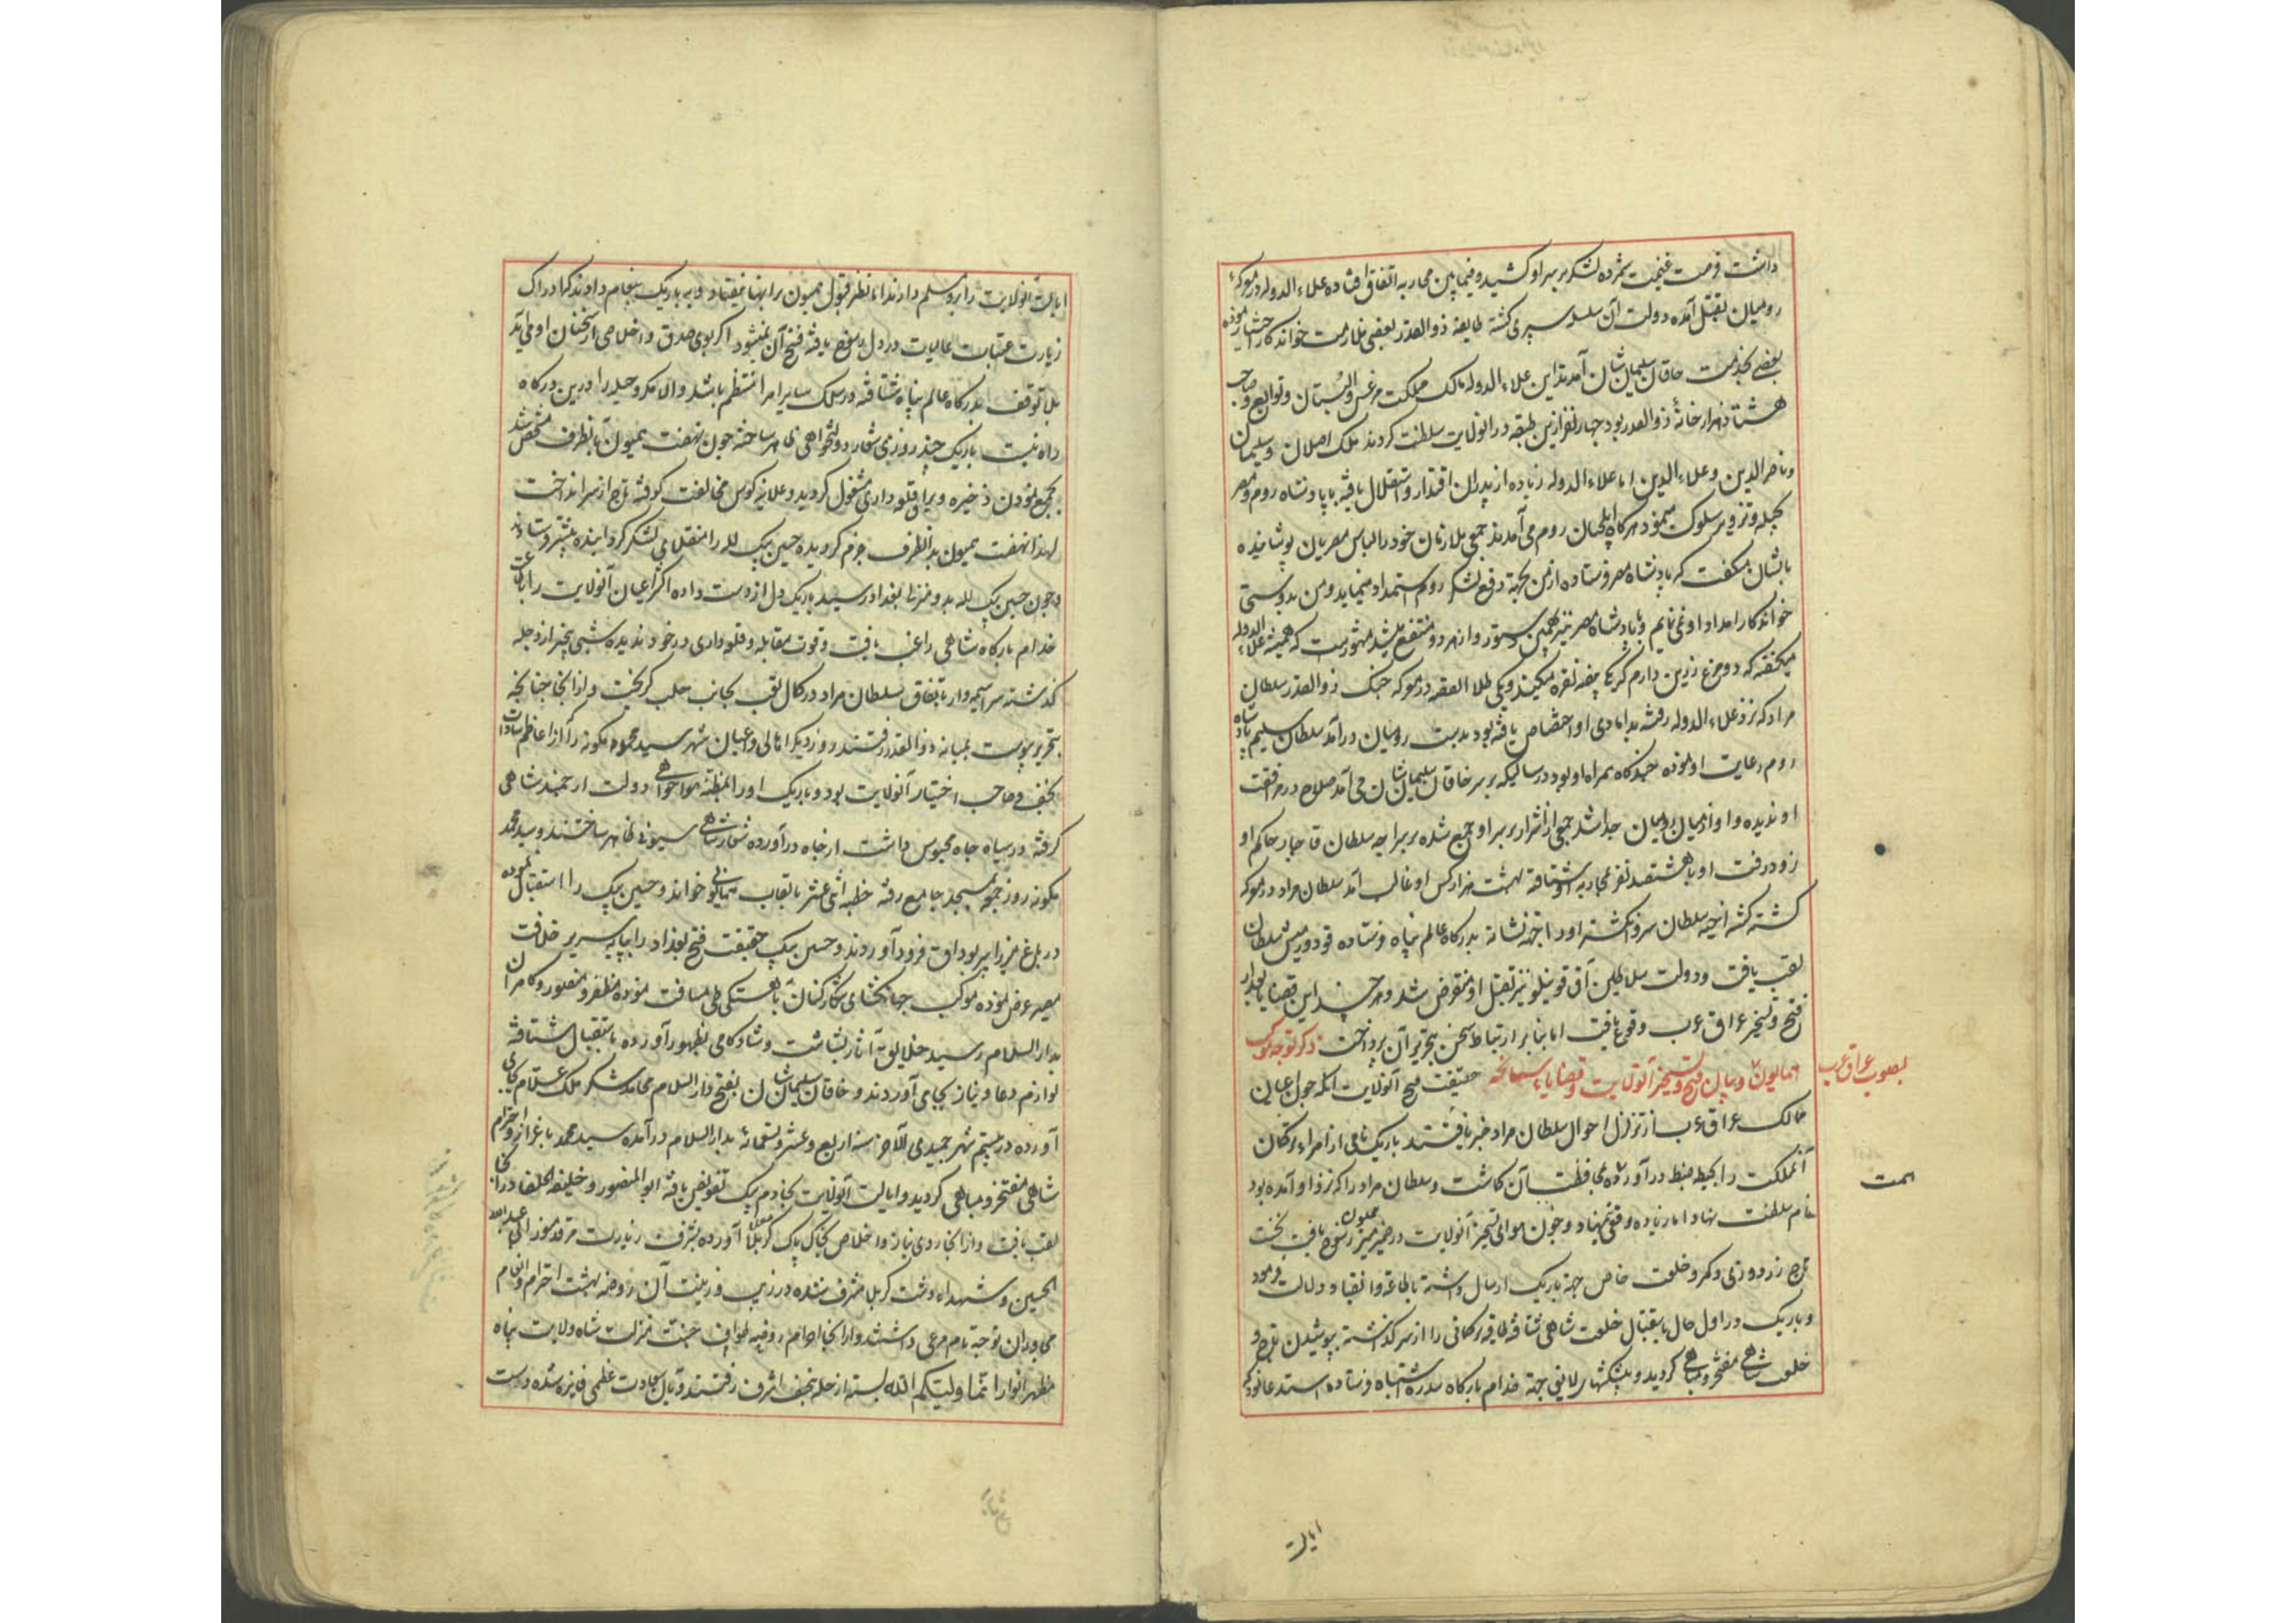 داشت فرصت غنیمت شمرده لشکر بر سر او کشیده فیمابین محاربه اتفاق افتاده علاء الدوله در معرکهٔ
رومیان بقتل آمده دولت آن سلسله سپری گشته طایفهٔ ذوالقدر بعضی بملازمت خواندکار اختیار نموده
بعضی بخدمت خاقان سلیمان شان آمدند این علاء الدوله مالک مملکت مرعش و البستان و توابع و صاحب
هشتاد هزار خانهٔ ذوالقدر بود چهار نفر ازین طبقه در انولایت سلطنت کردند ملک اصلان و سلیمان
و ناصرالدین و علاء الدین اما علاء الدوله زیاده از پدران اقتدار و استقلال یافته با پادشاه روم و مصر
بحیله و تزویر سلوک مینمود هرگاه ایلچیان روم می آمدند جمعی ملازمان خود را لباس مصریان پوشانیده
بایشان میگفت که پادشاه مصر فرستاده از من بجهة دفع لشکر روم استمداد مینماید و من بدوستی
خواندکار امداد او نمی نمایم و با پادشاه مصر نیز همین دستور و از هر دو منتفع میشد مشهورست که همیشه علاء الدوله
میگفته که دو مرغ زرین دارم که یکی بیضه نقره میکند و یکی طلا القصه در معرکه جنگ ذوالقدر سلطان
مراد که نزد علاء الدوله رفته بدامادی او اختصاص یافته بود بدست رومیان درآمد سلطان سلیم پادشاه
روم رعایت او نموده چندگاه همراه او بود در سالیکه بر سر خاقان سلیمان شان می آمد صلاح در مرافقت
او ندیده و او از میان رومیان جدا شد جمعی از اشرار بر سر او جمع شده بر سر اجه سلطان قاجار حاکم او
زود رفت او با هشتصد نفر بمحاربه او شتافته بهشت هزار کس او غالب آمد سلطان مراد در معرکه
کشته گشته اجه سلطان سر و انگشتر او را بجهة نشانه بدرگاه عالم پناه فرستاده قودورمیش سلطان
لقب یافت و دولت سلاطین آق قوینلو نیز بقتل او منقرض شد و هر چند این قضایا بعد از
فتح و تسخیر عراق عرب وقوع یافت اما بنابر ارتباط سخن بتحریر آن پرداخت ذکر توجه موکب
همایون بصوب عراق عرب و بیان فتح و تسخیر آنولایت و قضایای سانحه حقیقت فتح آنولایت آنکه چون اعیان
ممالک عراق عرب از تزلزل احوال سلطان مراد خبر یافتند باریک نامی از امراء ترکمان
آنمملکت را بحیطه ضبط درآورده بمحافظت آن گماشت و سلطان مراد را که نزد او آمده بود
نام سلطنت نهاد اما زیاده وقعی ننهاد و چون هوای تسخیر آنولایت در ضمیر منیر همیون رسوخ یافت نخست
تاج زردوزی و کمر و خلعت خاص جهة باریک ارسال داشته باطاعت و انقیاد دلالت فرمود
و باریک در اول حال باستقبال خلعت شاهی شتافته طاقیه ترکمانی را از سر گذاشته بپوشیدن تاج و
خلعت شاهی مفتخر و مباهی گردید و پیشکشهای لایق جهة خدام بارگاه سدره اشتباه فرستاده استدعا نمود که
همت
ایالت
ایالت آنولایت را برو مسلم دارند اما بنظر قبول همیون بر اینها نیفتاد و به باریک پیغام دادند که ادراک
زیارت عتبات عالیات در دل رسوخ یافته فسخ آن نمیشود اگر بوی صدق و اخلاص از سخنان او می آید
بلا توقف بدرگاه عالم پناه شتافته در سلک سایر امرا منتظم باشد و الا مکر و حیله را درین درگاه
راه نیست باریک چند روزی شعار دولتخواهی ظاهر ساخته چون نهضت همیون بآنطرف مشخص شد
بجمع نمودن ذخیره و یراق قلعه داری مشغول گردید و علانیه کوس مخالفت کوفته تاج از سر انداخت
لهذا نهضت همیون بدانطرف جزم گردیده حسین بیک لله را منقلای لشکر گردانیده پیشتر فرستادند
و چون حسین بیک لله بدو منزل بغداد رسید باریک دل از دست داده اکثر اعیان آنولایت را باطاعت
خدام بارگاه شاهی راغب یافت و قوت مقابله و قلعه داری در خود ندیده شبی بیخبر از دجله
گذشته سراسیمه وار باتفاق سلطان مراد در کمال تعب بجانب حلب گریخت و از آنجا چنانچه
بتحریر پیوست بمیانه ذوالقدر رفتند و روز دیگر اهالی و اعیان شهر سید محمد کمونه را که از اعاظم سادات
نجف و صاحب اختیار آنولایت بود و باریک او را بمظنه هواخواهی دولت ارجمند شاهی
گرفته در سیاه چاه محبوس داشت از چاه درآورده شعار شاهی سیونی ظاهر ساختند و سید محمد
کمونه روز جمعه بمسجد جامع رفته خطبه اثنی عشر بالقاب همایونی خواند و حسین بیک را استقبال نموده
در باغ میرزا پیر بوداق فرود آوردند و حسین بیک حقیقت فتح بغداد را بپایه سریر خلافت
مصیر عرض نموده موکب جهانگشای شکارکنان بآهستگی طی مسافت نموده مظفر و منصور و کامران
بدارالسلام رسید خلایق آثار بشاشت و شادکامی بظهور آورده باستقبال شتافته
لوازم دعا و نیاز بجای می آوردند و خاقان سلیمان شان بفتح دارالسلام محامد شکر ملک علام بجای
آورده در بیستم شهر جمیدی الآخر سنه اربع و عشر و تسعمائه بدارالسلام درآمده سید محمد باعزاز و احترام
شاهی مفتخر و مباهی گردید و ایالت آنولایت بخادم بیک تفویض یافته ابوالمنصور و خلیفه الخلفا در آنجا
لقب یافت و از آنجا روی نیاز و اخلاص بخاک پاک کربلا معلی آورده بشرف زیارت مرقد منور ابی عبدالله
الحسین و شهداء دشت کربلا مشرف شده در زیب و زینت آن روضه بهشت احترام و انعام
مجاوران توجه تام مرعی داشتند و از آنجا احرام روضه طواف جنت منزلت شاه ولایت پناه
مظهر انوار انما ولیکم الله بسته از حله بنجف اشرف رفتند و بآن سعادت عظمی فایز شده دست